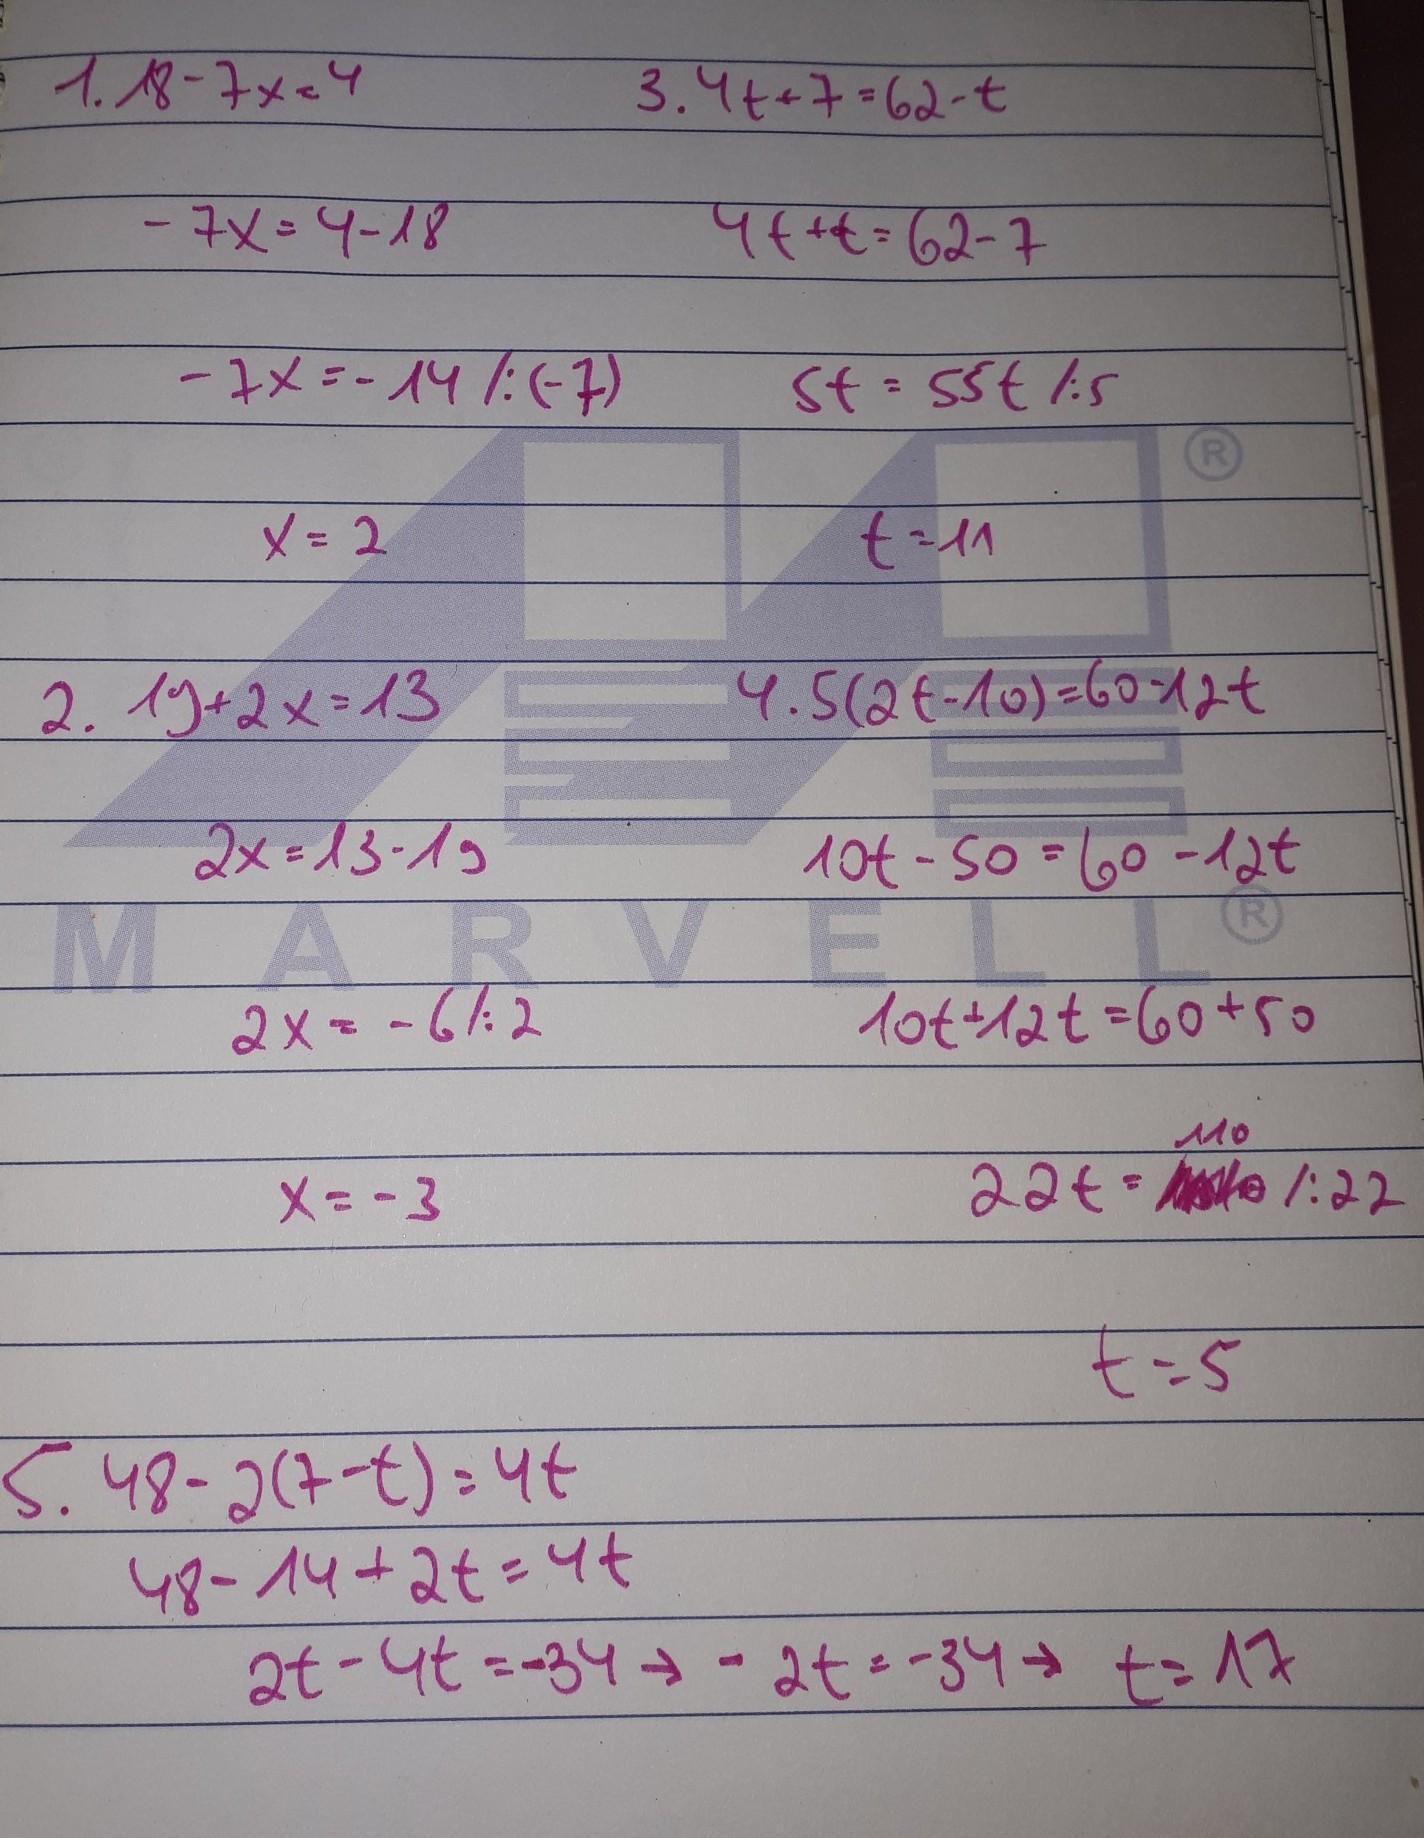 1. 18-7x=4
-7x=4-18
-7x=-14 /:(-7)
x=2
2. 19+2x=13
2x=13-19
2x=-6/:2
x=-3
3. 4t+7=62-t
4t+t=62-7
5t=55t /:5
t=11
4. 5(2t-10)=60-12t
10t-50=60-12t
10t+12t=60+50
110
22t= /:22
t=5
5. 48-2(7-t)=4t
48-14+2t=4t
2t-4t=-34→ -2t=-34→ t=17
®
MARVELL®